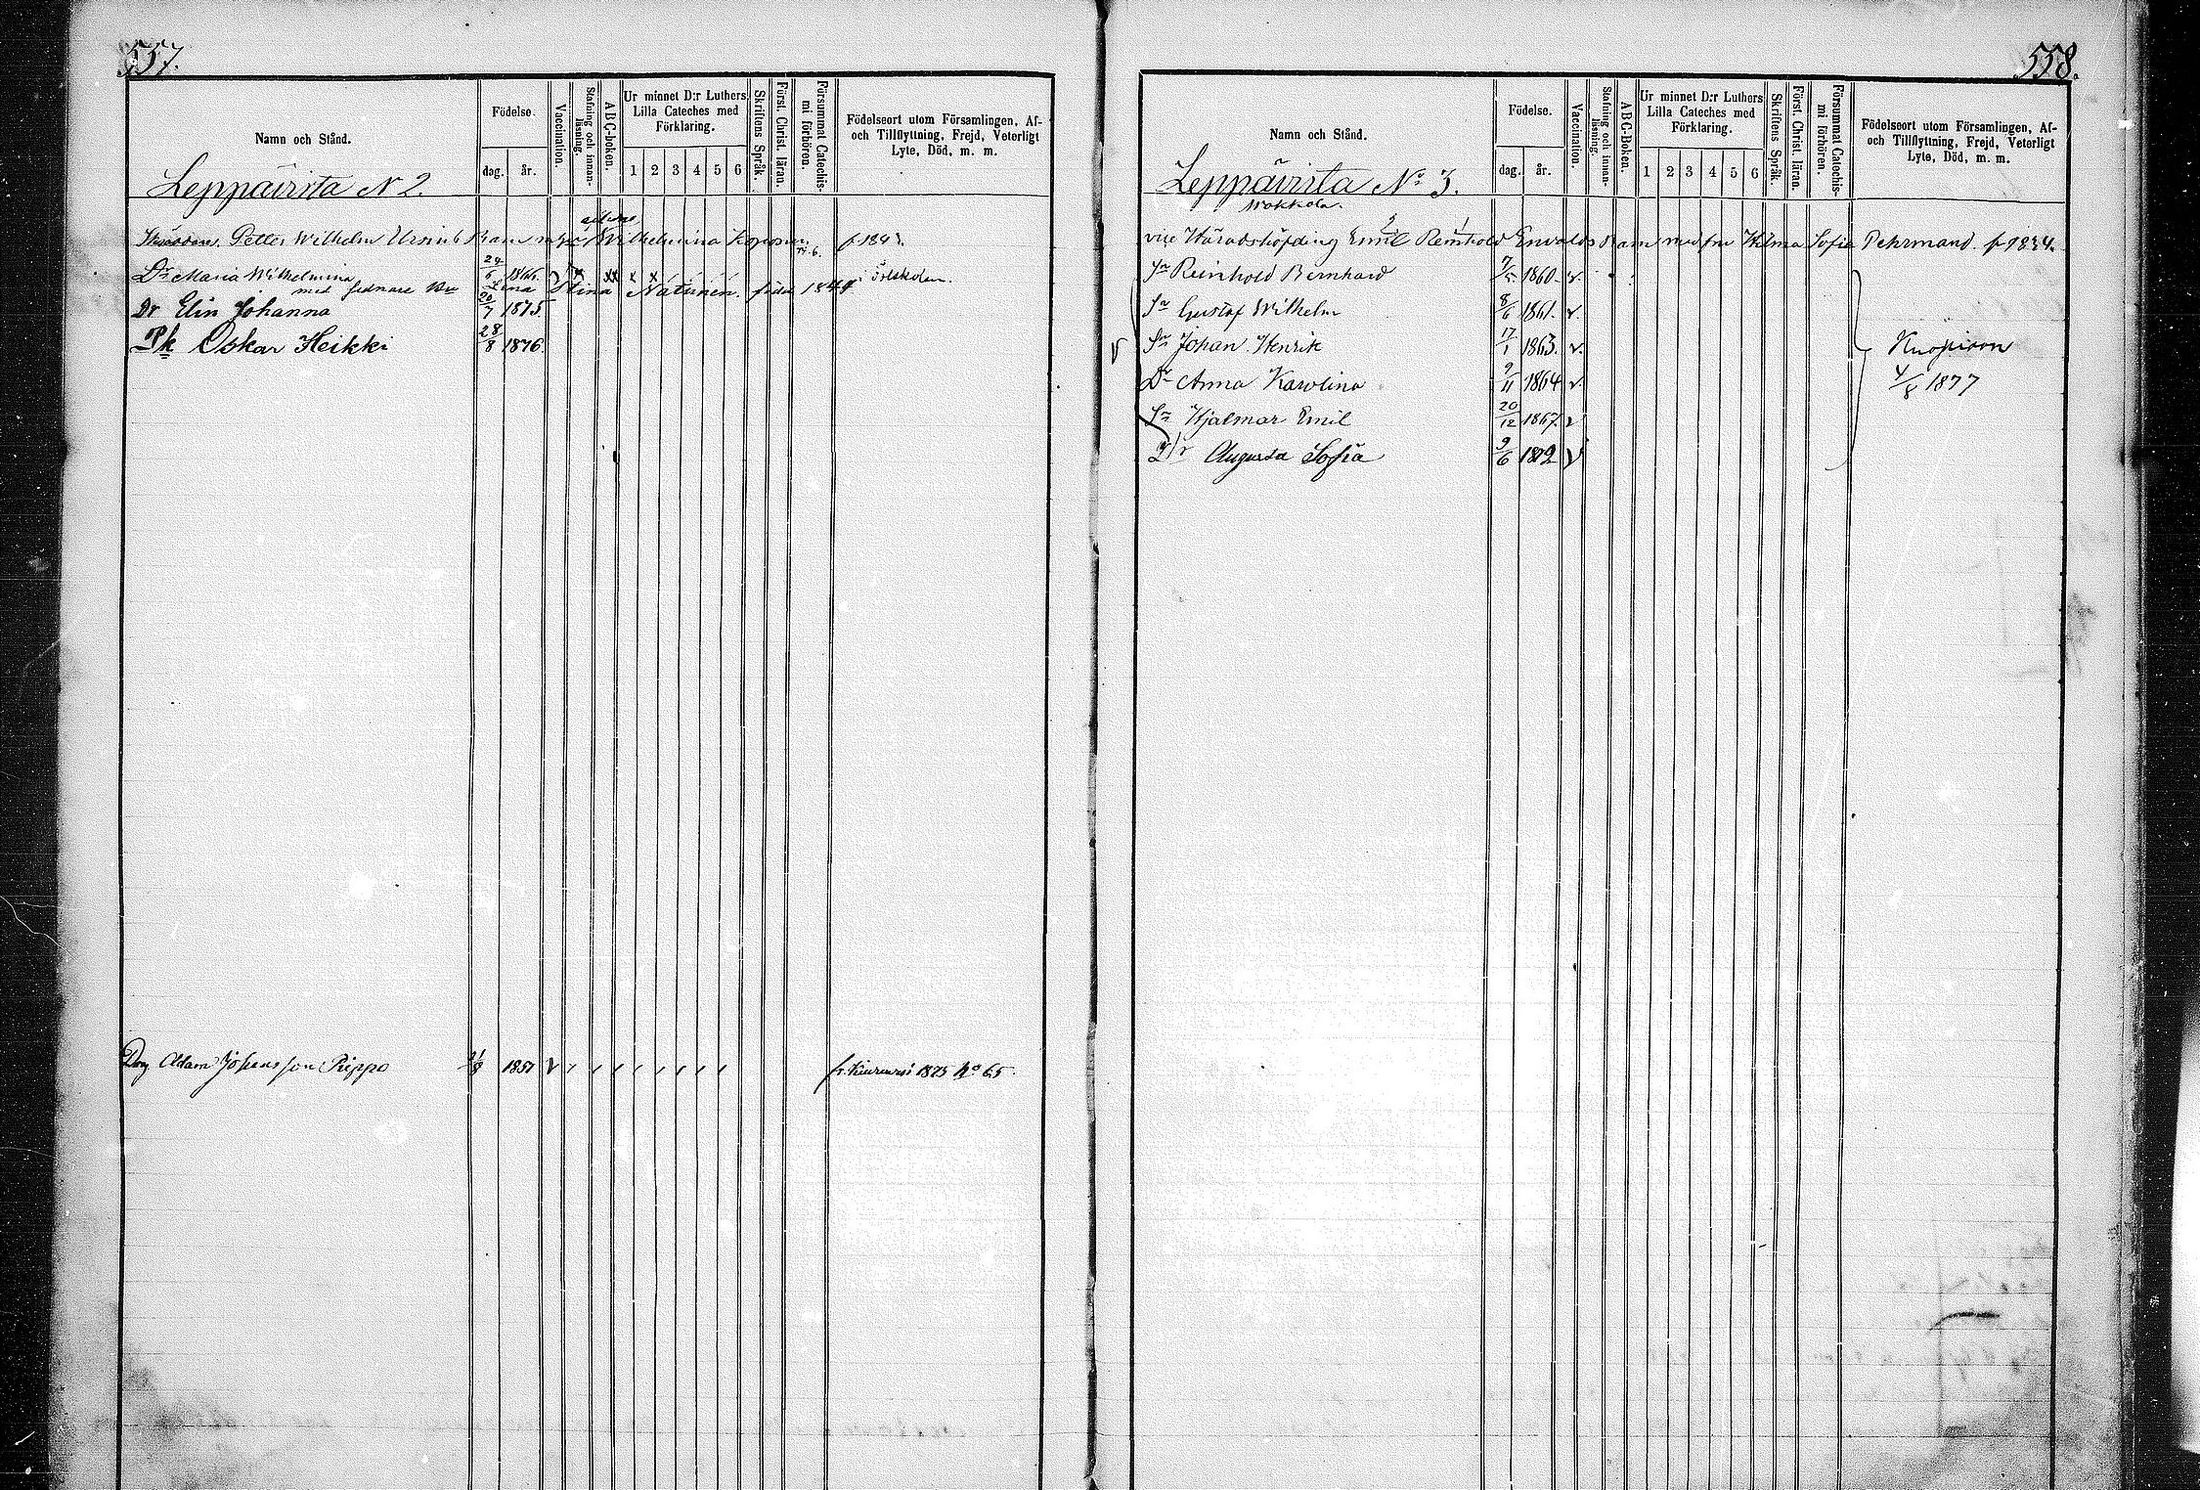 557.
Namn och Stånd.
Födelse.
dag.
år.
Vaccination.
Stafning och innan-läsning.
ABC-boken.
Ur minnet D:r Luthers Lilla Cateches med Förklaring.
1 2 3 4 5 6
Skriftens Språk.
Först. Christ. läran.
Försummat Catechis-mi förhören.
Födelseort utom Församlingen, Af- och Tillflyttning, Frejd, Veterligt Lyte, Död, m. m.
Leppävirta N 2.
Petter Wilhelm Ursinus Barn Wilhelmina f. 1843.
Dr Maria Wilhelmina 29/6 1866.
med sednare Lena Stina Natunen. född 1844
Dr Elin Johanna 20/7 1875
Pk Oskar Heikki 28/8 1876.
Adam Johansson Rieppo 1851 1875 No 65.
558.
Namn och Stånd.
Födelse.
dag.
år.
Vaccination.
Stafning och innan-läsning.
ABC-boken.
Ur minnet D:r Luthers Lilla Cateches med Förklaring.
1 2 3 4 5 6
Skriftens Språk.
Först. Christ. läran.
Försummat Catechis-mi förhören.
Födelseort utom Församlingen, Af- och Tillflyttning, Frejd, Veterligt Lyte, Död, m. m.
Leppävirta No 3.
vice Häradshöfding Emil Reinhold Envalds Barn med fru Hilma Sofia Pehrmand. f. 1834.
Sn Reinhold Bernhard 1860. v.
Sn Gustaf Wilhelm 8/6 1861. v.
Sn Johan Henrik 17/1 1863. v. Kuopioon
Dr Anna Karolina 9/11 1864 v. 4/8 1877
Sn Hjalmar Emil 20/12 1867. v
Dr Augusta Sofia 9/6 1872 v